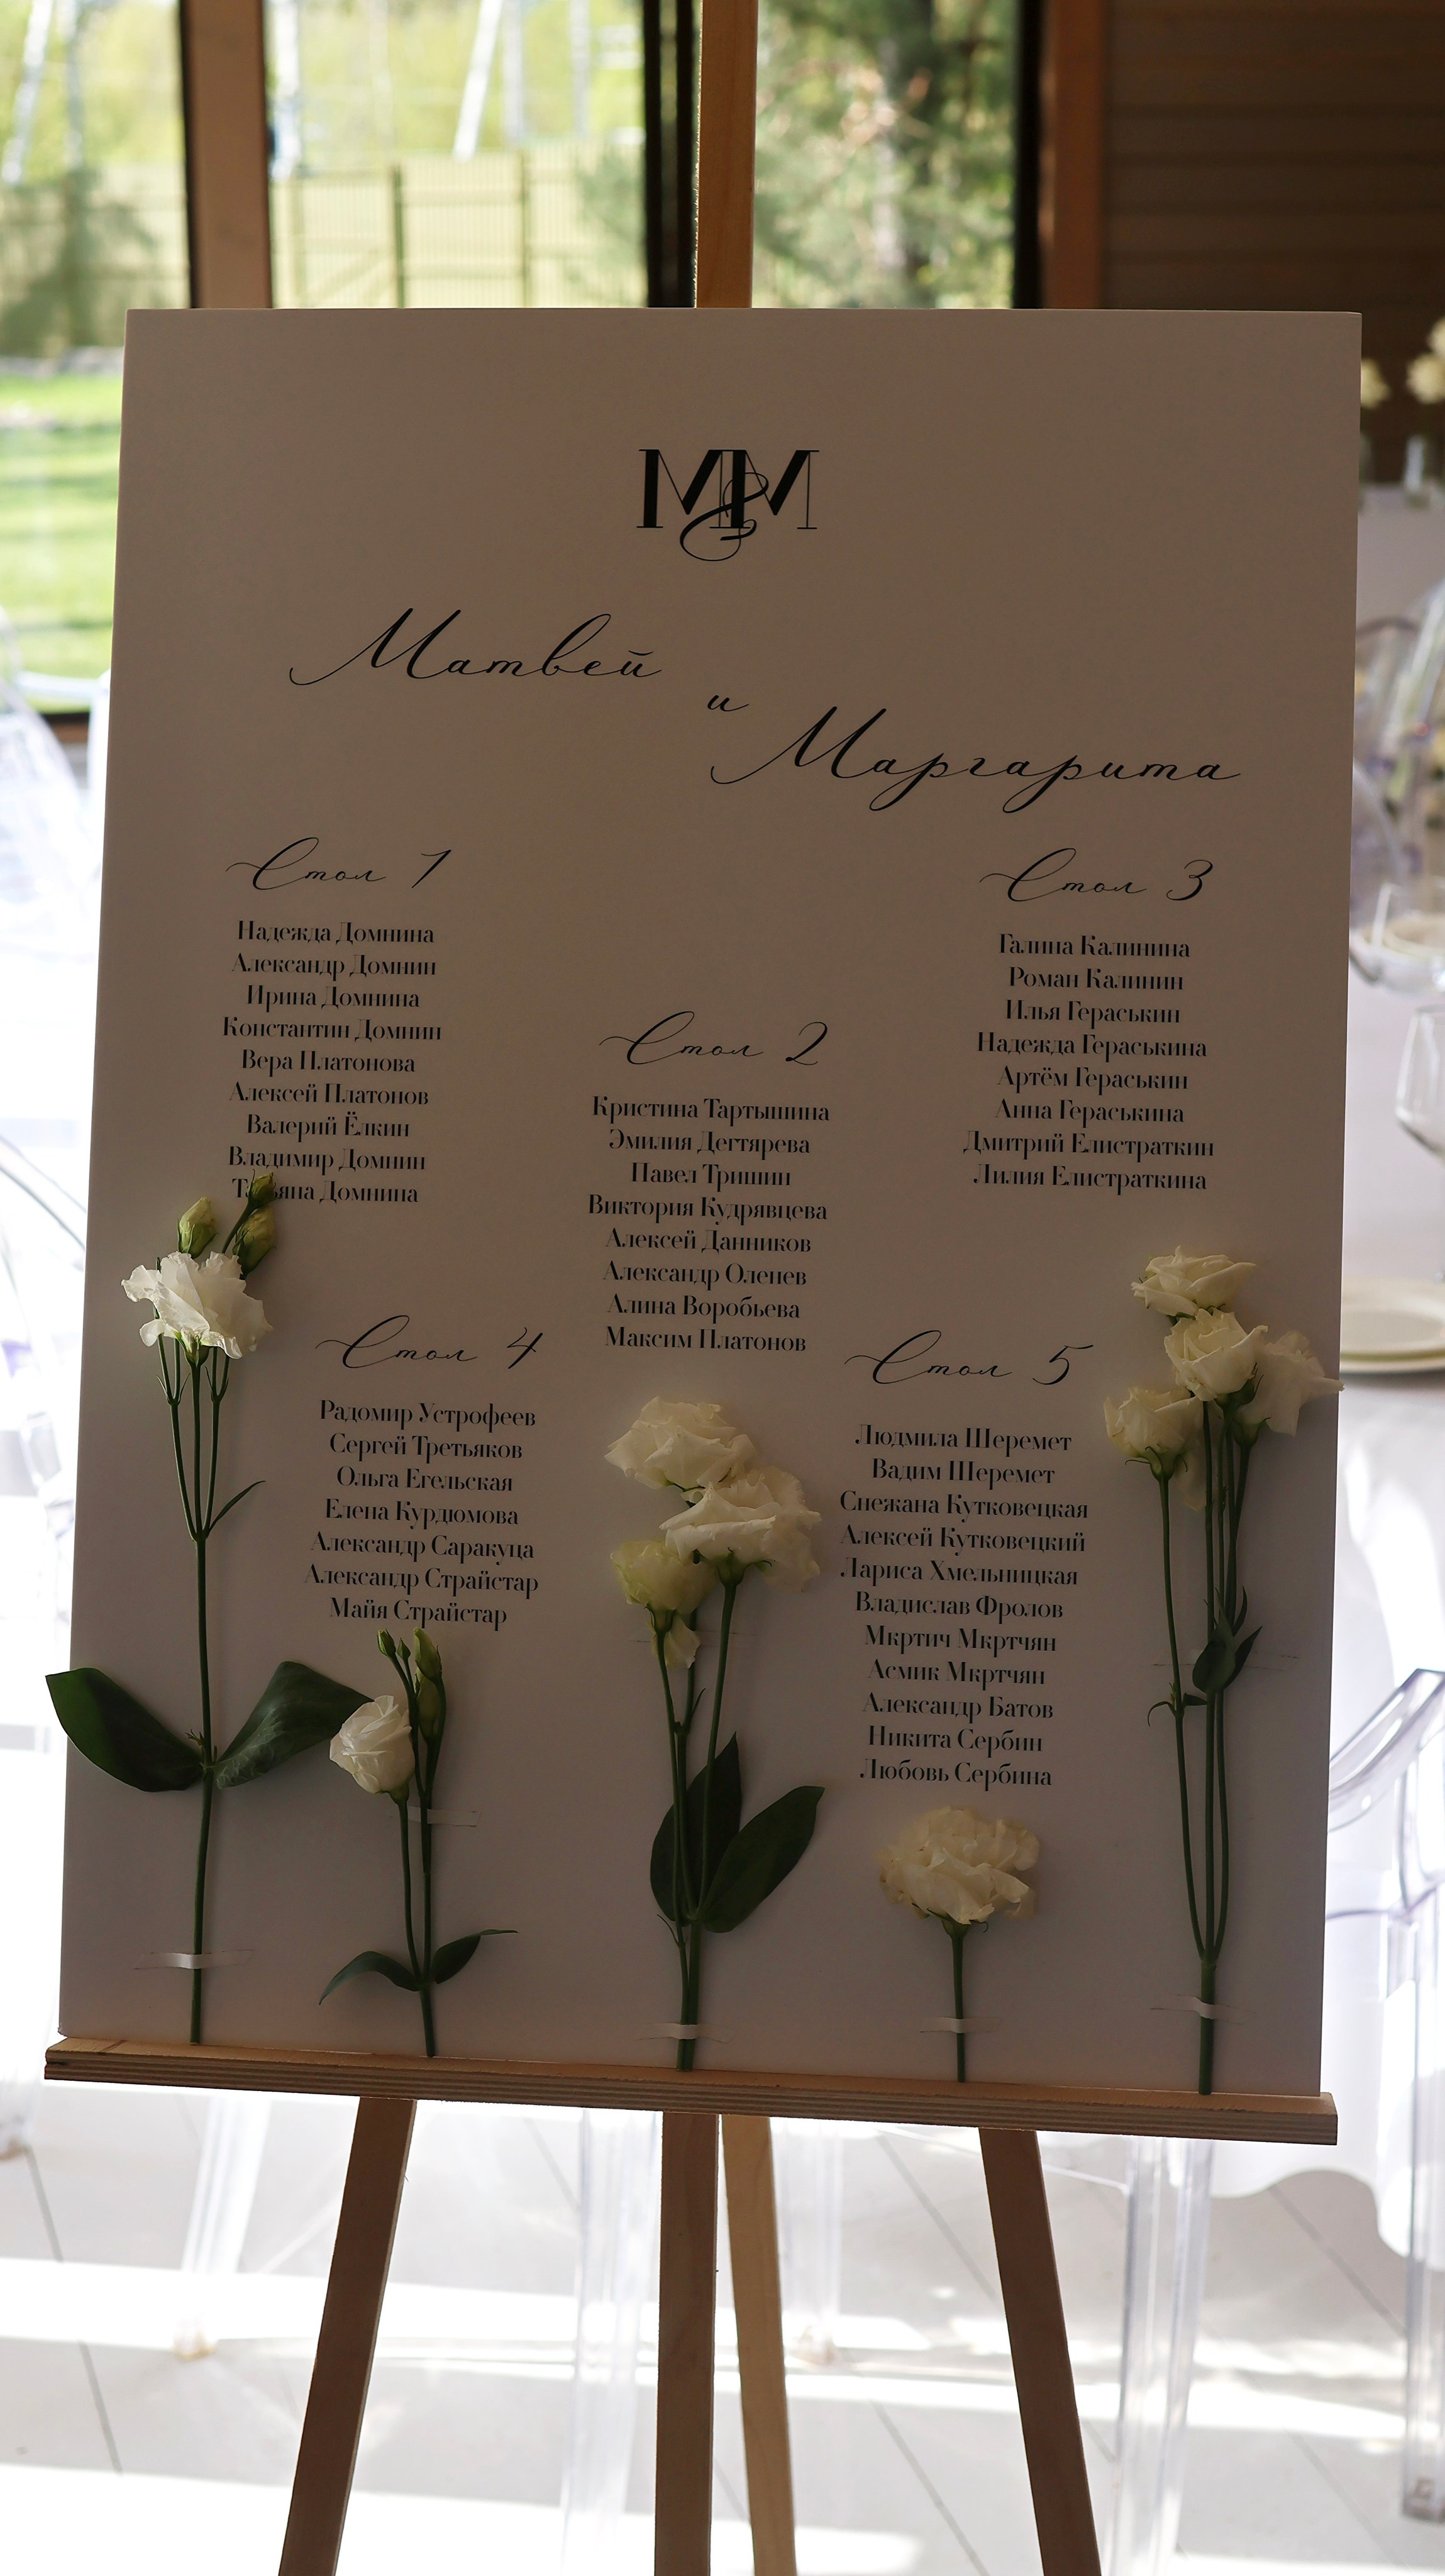 M&M
Матвей
и
Маргарита
Стол 1
Надежда Домнина
Александр Домнин
Ирина Домнина
Константин Домнин
Вера Платонова
Алексей Платонов
Валерий Ёлкин
Владимир Домнин
Татьяна Домнина
Стол 2
Кристина Тартышина
Эмилия Дегтярева
Павел Тришин
Виктория Кудрявцева
Алексей Данников
Александр Оленев
Алина Воробьева
Максим Платонов
Стол 3
Галина Калинина
Роман Калинин
Илья Гераськин
Надежда Гераськина
Артём Гераськин
Анна Гераськина
Дмитрий Елистраткин
Лилия Елистраткина
Стол 4
Радомир Устрофеев
Сергей Третьяков
Ольга Егельская
Елена Курдюмова
Александр Саракуца
Александр Страйстар
Майя Страйстар
Стол 5
Людмила Шеремет
Вадим Шеремет
Снежана Кутковецкая
Алексей Кутковецкий
Лариса Хмельницкая
Владислав Фролов
Мкртич Мкртчян
Асмик Мкртчян
Александр Батов
Никита Сербин
Любовь Сербина